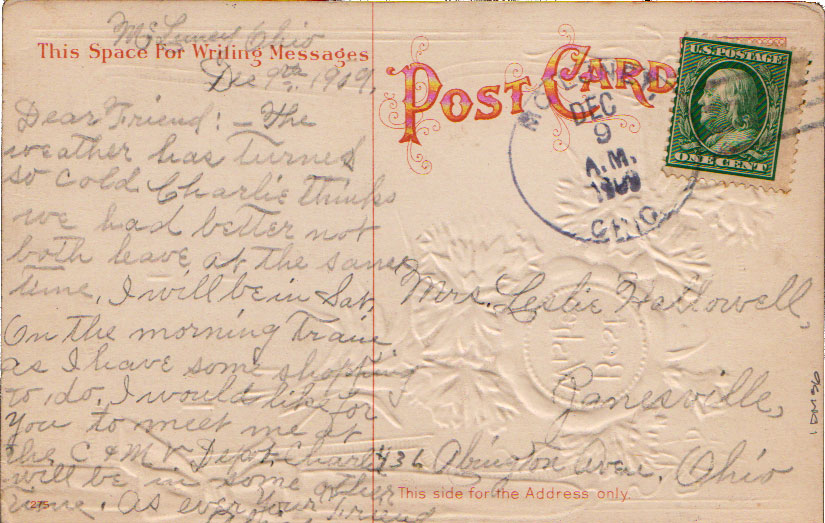 McLuney Ohio
This Space For Writing Messages
Dec 9th, 1909.
Dear Friend: – The
weather has turned
so cold Charlie thinks
we had better not
both leave at the same
time, I will be in Sat,
On the morning Train
as I have some shopping
to do, I would like for
you to meet me at
the C & M V Dept, Charlie
will be in some other
time. As ever your Friend
1275
POST CARD
MCLUNEY
DEC
9
A.M.
1909
OHIO
U.S. POSTAGE
ONE CENT
Mrs. Leslie Hallowell,
Zanesville,
436 Abington Aven. Ohio
This side for the Address only.